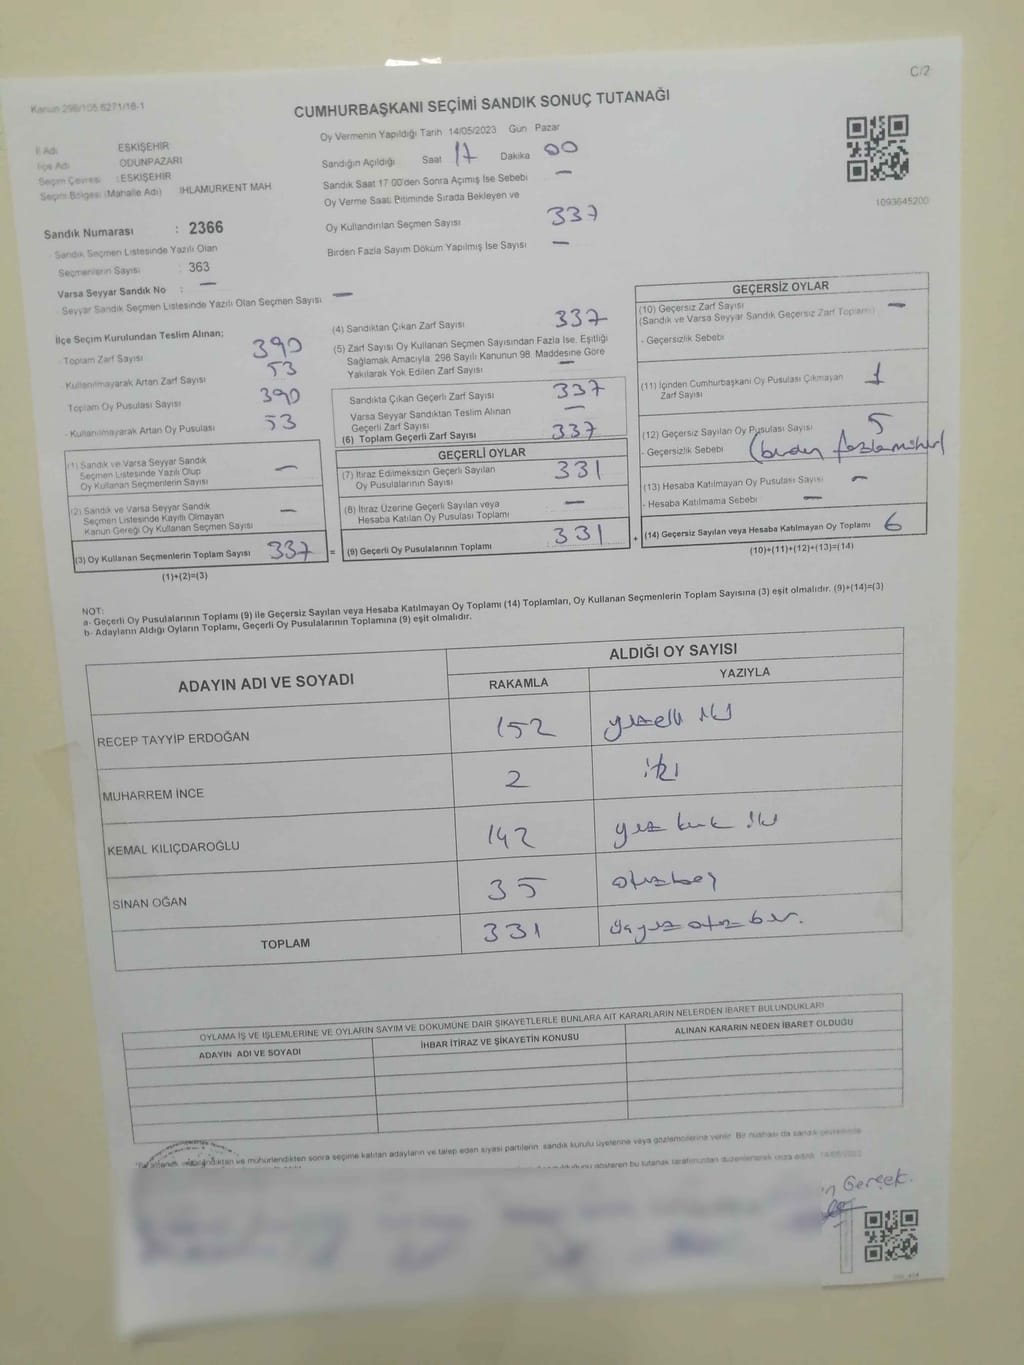 C/2
Kanun 298/105 6271/18-1
CUMHURBAŞKANI SEÇİMİ SANDIK SONUÇ TUTANAĞI
İl Adı ESKİŞEHİR
İlçe Adı ODUNPAZARI
Seçim Çevresi : ESKİŞEHİR
Seçim Bölgesi (Mahalle Adı) IHLAMURKENT MAH
Oy Vermenin Yapıldığı Tarih 14/05/2023 Gün Pazar
Sandığın Açıldığı Saat 17 Dakika 00
Sandık Saat 17:00'den Sonra Açımış İse Sebebi —
Oy Verme Saati Bitiminde Sırada Bekleyen ve
Oy Kullandırılan Seçmen Sayısı 337
Birden Fazla Sayım Döküm Yapılmış İse Sayısı —
1093645200
Sandık Numarası : 2366
- Sandık Seçmen Listesinde Yazılı Olan
Seçmenlerin Sayısı : 363
Varsa Seyyar Sandık No : —
- Seyyar Sandık Seçmen Listesinde Yazılı Olan Seçmen Sayısı —
İlçe Seçim Kurulundan Teslim Alınan;
- Toplam Zarf Sayısı 390
- Kullanılmayarak Artan Zarf Sayısı 53
Toplam Oy Pusulası Sayısı 390
- Kullanılmayarak Artan Oy Pusulası 53
(1) Sandık ve Varsa Seyyar Sandık
Seçmen Listesinde Yazılı Olup
Oy Kullanan Seçmenlerin Sayısı —
(2) Sandık ve Varsa Seyyar Sandık
Seçmen Listesinde Kayıtlı Olmayan
Kanun Gereği Oy Kullanan Seçmen Sayısı —
(3) Oy Kullanan Seçmenlerin Toplam Sayısı 337 =
(1)+(2)=(3)
(4) Sandıktan Çıkan Zarf Sayısı 337
(5) Zarf Sayısı Oy Kullanan Seçmen Sayısından Fazla İse, Eşitliği
Sağlamak Amacıyla, 298 Sayılı Kanunun 98. Maddesine Göre
Yakılarak Yok Edilen Zarf Sayısı —
Sandıkta Çıkan Geçerli Zarf Sayısı 337
Varsa Seyyar Sandıktan Teslim Alınan
Geçerli Zarf Sayısı —
(6) Toplam Geçerli Zarf Sayısı 337
GEÇERLİ OYLAR
(7) İtiraz Edilmeksizin Geçerli Sayılan
Oy Pusulalarının Sayısı 331
(8) İtiraz Üzerine Geçerli Sayılan veya
Hesaba Katılan Oy Pusulası Toplamı —
(9) Geçerli Oy Pusulalarının Toplamı 331 +
GEÇERSİZ OYLAR
(10) Geçersiz Zarf Sayısı —
(Sandık ve Varsa Seyyar Sandık Geçersiz Zarf Toplamı)
- Geçersizlik Sebebi
(11) İçinden Cumhurbaşkanı Oy Pusulası Çıkmayan 1
Zarf Sayısı
(12) Geçersiz Sayılan Oy Pusulası Sayısı 5
- Geçersizlik Sebebi (birden fazla mühür)
(13) Hesaba Katılmayan Oy Pusulası Sayısı —
- Hesaba Katılmama Sebebi —
(14) Geçersiz Sayılan veya Hesaba Katılmayan Oy Toplamı 6
(10)+(11)+(12)+(13)=(14)
NOT:
a- Geçerli Oy Pusulalarının Toplamı (9) ile Geçersiz Sayılan veya Hesaba Katılmayan Oy Toplamı (14) Toplamları, Oy Kullanan Seçmenlerin Toplam Sayısına (3) eşit olmalıdır. (9)+(14)=(3)
b- Adayların Aldığı Oyların Toplamı, Geçerli Oy Pusulalarının Toplamına (9) eşit olmalıdır.
ADAYIN ADI VE SOYADI
ALDIĞI OY SAYISI
RAKAMLA YAZIYLA
RECEP TAYYİP ERDOĞAN 152 yüzelli iki
MUHARREM İNCE 2 iki
KEMAL KILIÇDAROĞLU 142 yüz kırk iki
SİNAN OĞAN 35 otuzbeş
TOPLAM 331 üçyüz otuz bir.
OYLAMA İŞ VE İŞLEMLERİNE VE OYLARIN SAYIM VE DÖKÜMÜNE DAİR ŞİKAYETLERLE BUNLARA AİT KARARLARIN NELERDEN İBARET BULUNDUKLARI
ADAYIN ADI VE SOYADI İHBAR İTİRAZ VE ŞİKAYETİN KONUSU ALINAN KARARIN NEDEN İBARET OLDUĞU
ve mühürlendikten sonra seçime katılan adayların ve talep eden siyasi partilerin sandık kurulu üyelerine veya gözlemcilerine verilir. Bir nüshası da sandık çevresinde
gösteren bu tutanak tarafımızdan düzenlenerek imza edildi. 14/05/2023
Gerçek.